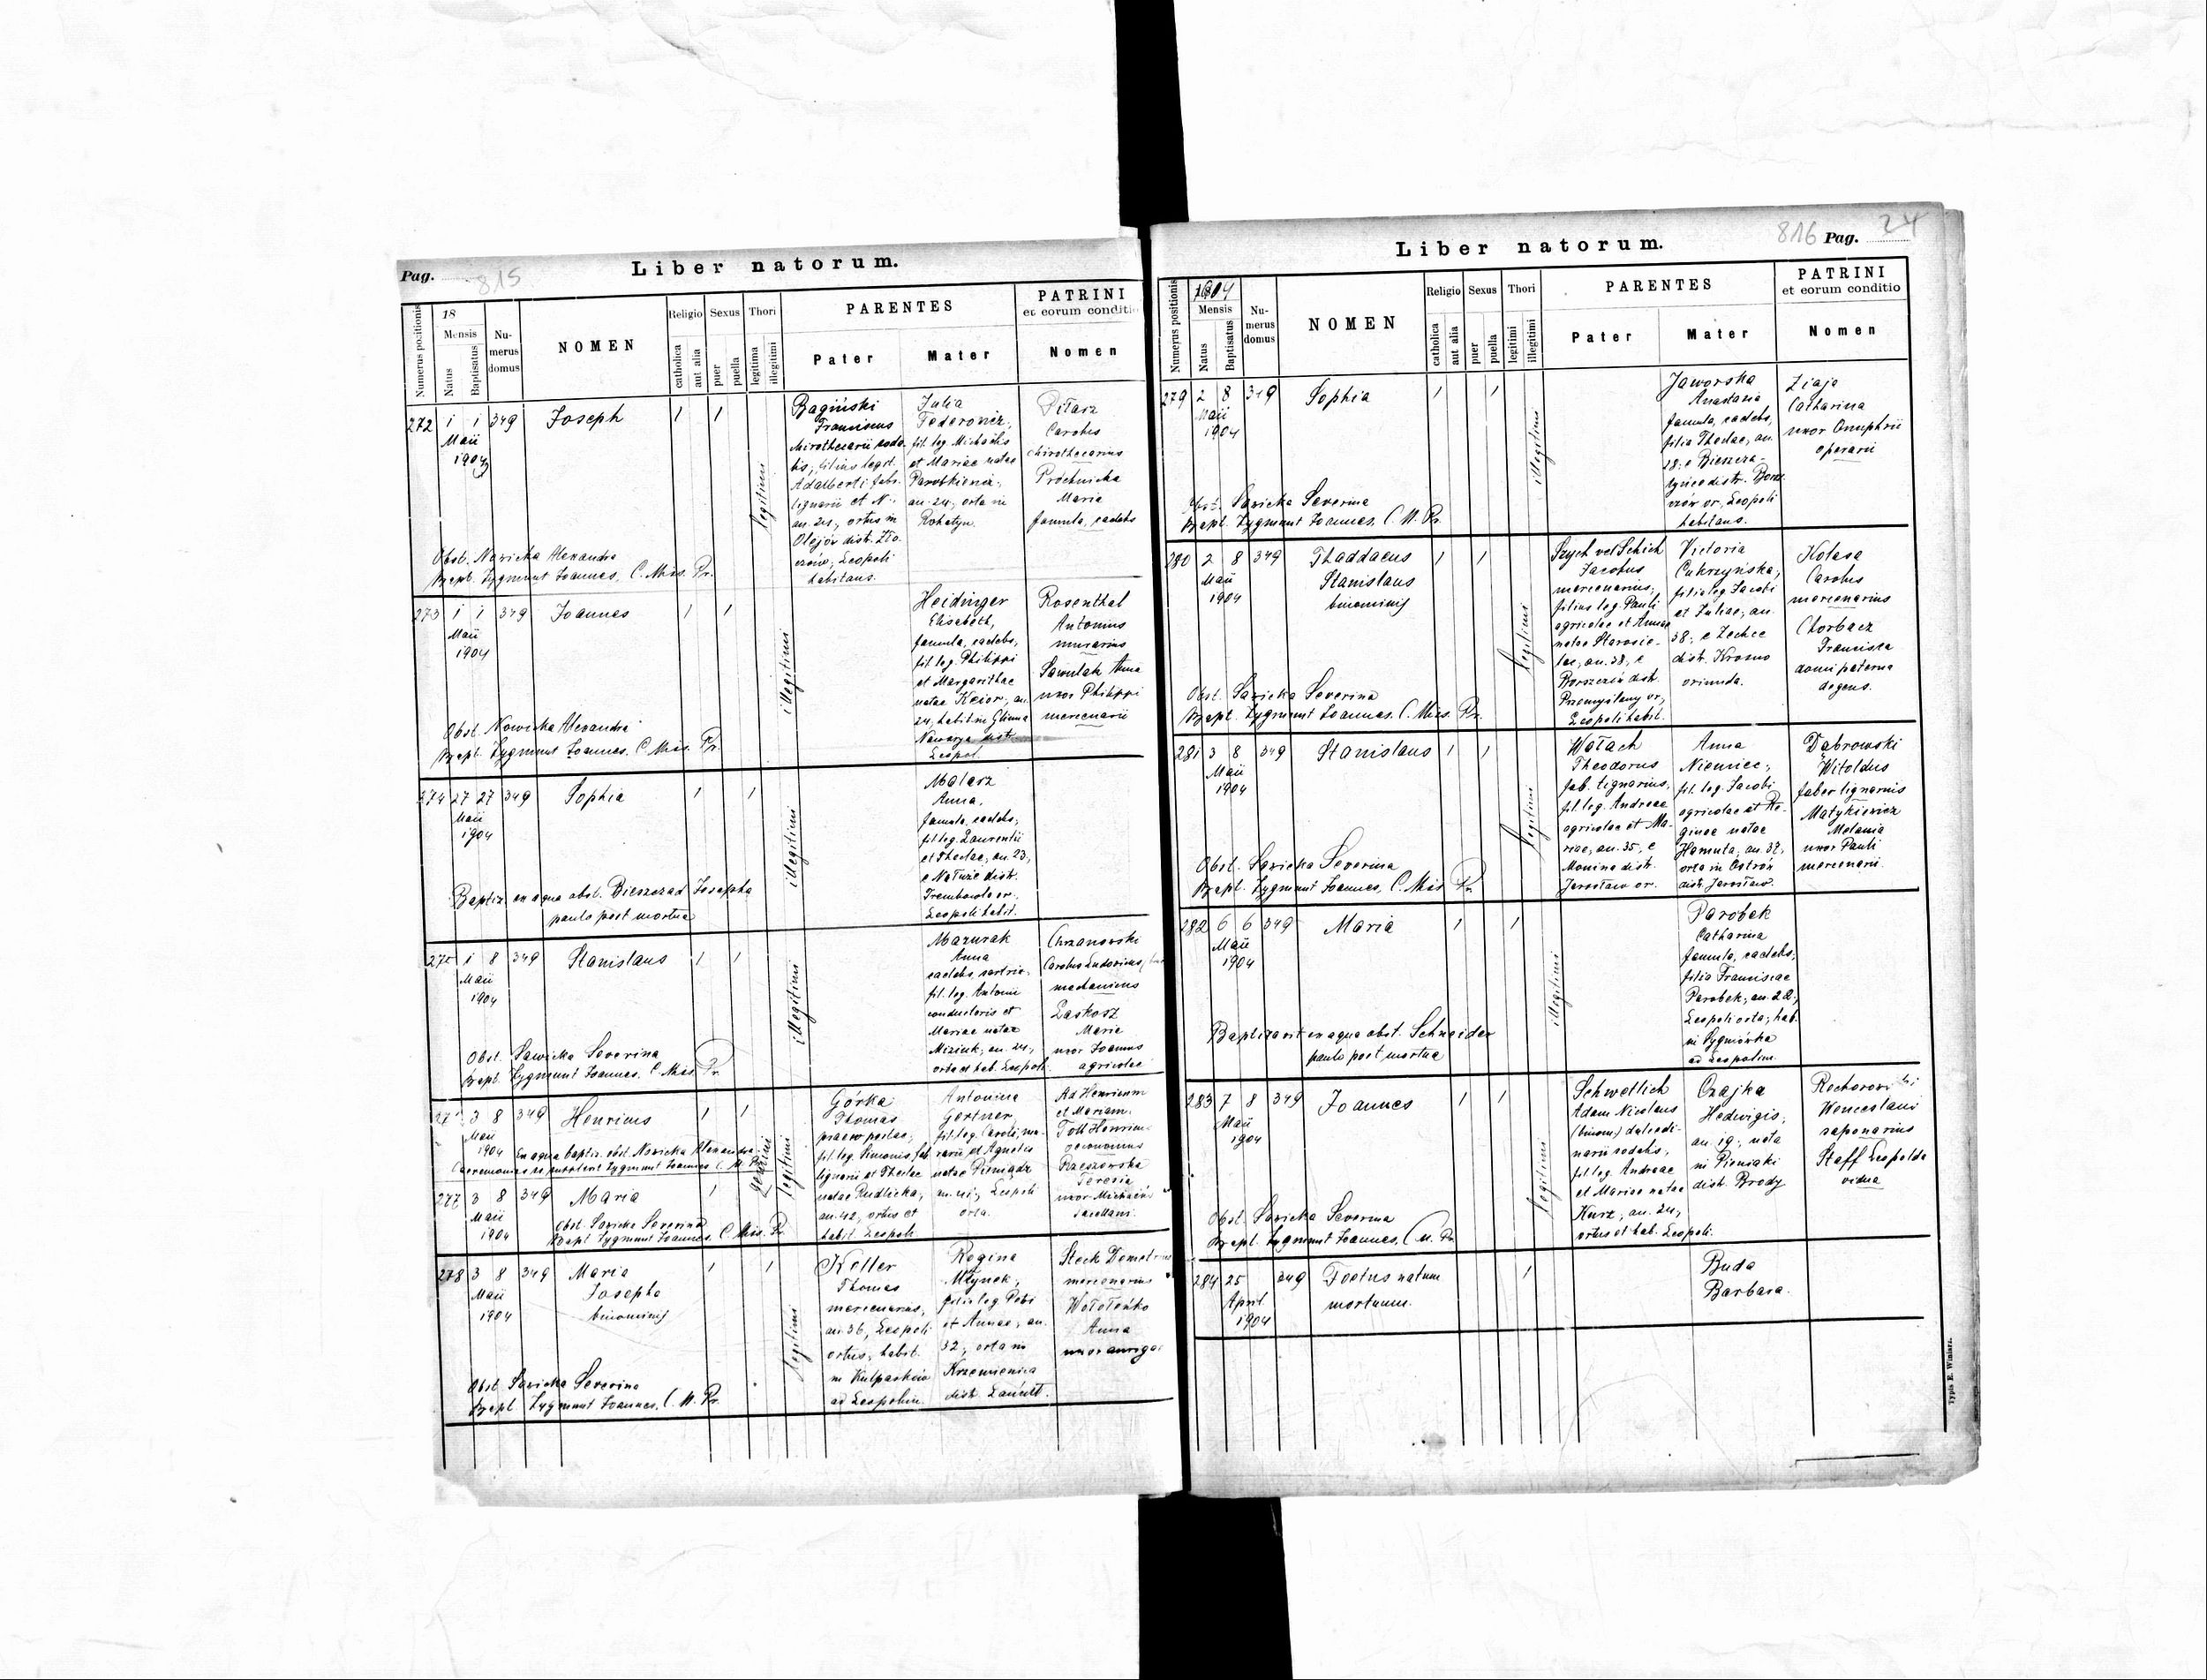 Pag. 815
Liber natorum.
Numerus positionis
18
Mensis
Natus
Baptisatus
Nu-
merus
domus
NOMEN
Religio
catholica
aut alia
Sexus
puer
puella
Thori
legitima
illegitimi
PARENTES
Pater
Mater
PATRINI
et eorum conditio
Nomen
272 1 1 349 Joseph 1 1
Maii
1904
legitimi
Bagiński
Franciscus
chirothecarii soda-
lis, filius legit.
Adalberti fabr.
lignarii et N.
an. 24, ortus in
Olejów distr. Zło-
czów, Leopoli
habitans.
Julia
Fedorowicz,
fil. leg. Michaelis
et Mariae natae
an. 24, orta in
Rohatyn.
Pitarz
Carolus
chirothecarius
Próchnicka
Maria
famula, caelebs
Obst. Nowicka Alexandra
Bapt. Zygmunt Joannes, C. Miss. Pr.
273 1 1 349 Joannes 1 1
Maii
1904
illegitimi
Heidinger
Elisabeth,
famula, caelebs,
fil. leg. Philippi
et Margarithae
natae Keior, an.
24, habit. in Glinna
Nawarya distr.
Leopol.
Rosenthal
Antonius
murarius
Sawulak Anna
uxor Philippi
mercenarii
Obst. Nowicka Alexandra
Bapt. Zygmunt Joannes. C. Miss. Pr.
274 27 27 349 Sophia 1 1
Maii
1904
illegitimi
Malarz
Anna,
famula, caelebs,
fil. leg. Laurentii
et Theclae, an. 23,
e Nałuże distr.
Trembowla or.
Leopoli habit.
Baptiz. ex aqua obst. Bieszczad Josepha
paulo post mortua
275 1 8 349 Stanislaus 1 1
Maii
1904
illegitimi
Mazurak
Anna
caelebs, sartrix,
fil. leg. Antonii
conductoris et
Mariae natae
Miziuk, an. 24,
orta et hab. Leopoli.
Chrzanowski
Carolus Ludovicus
mechanicus
Laskosz
Maria
uxor Joannis
agricolae
Obst. Sawicka Severina
Bapt. Zygmunt Joannes. C. Miss. Pr.
3 8 349 Henricus 1 1
Maii
1904
Ex aqua baptiz. obst. Nowicka Alexandra.
Caeremonias supplevit Zygmunt Joannes C. M. Pr.
gemini
legitimi
Górka
Thomas
praeco postae,
fil. leg. Simonis, fab.
lignarii et Theclae
natae Rudlicka,
an. 42, ortus et
habit. Leopoli.
Antonina
Gertner,
fil. leg. Caroli, mu-
rarii et Agnetis
natae Pieniądz
an. 41, Leopoli
orta.
Ad Henricum
et Mariam.
Toth Henricus
oeconomus
Rzeszowska
Teresia
uxor Michaelis
sacellani.
277 3 8 349 Maria 1
Maii
1904
Obst. Sawicka Severina
Bapt. Zygmunt Joannes. C. Miss. Pr.
278 3 8 349 Maria 1 1
Maii
1904
Josepha
binominis
legitimi
Keller
Thomas
mercenarius,
an. 36, Leopoli
ortus, habit.
in Kulparków
ad Leopolim.
Regina
Młynek,
filia leg. Petri
et Annae, an.
32, orta in
Krzemienica
distr. Łańcut.
Steck Demetrius
mercenarius
Wołoteńko
Anna
uxor aurigae
Obst. Sawicka Severina
Bapt. Zygmunt Joannes. C. M. Pr.
816 Pag. 24
Liber natorum.
Numerus positionis
1904
Mensis
Natus
Baptisatus
Nu-
merus
domus
NOMEN
Religio
catholica
aut alia
Sexus
puer
puella
Thori
legitimi
illegitimi
PARENTES
Pater
Mater
PATRINI
et eorum conditio
Nomen
279 2 8 349 Sophia 1 1
Maii
1904
illegitimi
Jaworska
Anastasia
famula, caelebs,
filia Theclae, an.
Leopoli
habitans.
Ziaja
Catharina
uxor Onuphrii
operarii
Obst. Sawicka Severina
Bapt. Zygmunt Joannes. C. M. Pr.
280 2 8 349 Thaddaeus 1 1
Maii
1904
Stanislaus
binominis
legitimi
Szych vel Schich
Jacobus
mercenarius,
filius leg. Pauli
agricolae et Annae
natae Starosie-
lec, an. 38, e
Borszczów distr.
Przemyślany or.,
Leopoli habit.
Victoria
Cukrzyńska,
filia leg. Jacobi
et Juliae, an.
38, e Zechce
distr. Krosno
oriunda.
Kolasa
Carolus
mercenarius
Chorbacz
Francisca
domi paterna
degens.
Obst. Sawicka Severina
Bapt. Zygmunt Joannes. C. Miss. Pr.
281 3 8 349 Stanislaus 1 1
Maii
1904
legitimi
Wołach
Theodorus
fab. lignarius,
fil. leg. Andreae
agricolae et Ma-
riae, an. 35, e
Monina distr.
Jarosław or.
Anna
Niemiec,
fil. leg. Jacobi
agricolae et Re-
ginae natae
Hamuta, an. 37,
orta in Ostrów
distr. Jarosław.
Dąbrowski
Witoldus
faber lignarius
Matykiewicz
Melania
uxor Pauli
mercenarii
Obst. Sawicka Severina
Bapt. Zygmunt Joannes. C. Miss. Pr.
282 6 6 349 Maria 1 1
Maii
1904
illegitimi
Parobek
Catharina
famula, caelebs,
filia Franciscae
Parobek, an. 22,
Leopoli orta, hab.
in Sygniówka
ad Leopolim.
Baptizavit ex aqua obst. Schneider
paulo post mortua
283 7 8 349 Joannes 1 1
Maii
1904
legitimi
Schwetlich
Adam Nicolaus
(binom.) dulcedi-
narii sodalis,
fil. leg. Andreae
et Mariae natae
Kurz, an. 24,
ortus et hab. Leopoli.
Czajka
Hedwigis,
an. 19, nata
in Pieniaki
distr. Brody
Wenceslaus
saponarius
Staff Leopolda
vidua
Obst. Sawicka Severina
Bapt. Zygmunt Joannes. C. M. Pr.
284 25 349 Foetus natum 1
April.
1904
mortuum.
Buda
Barbara.
Typis E. Winiarz.